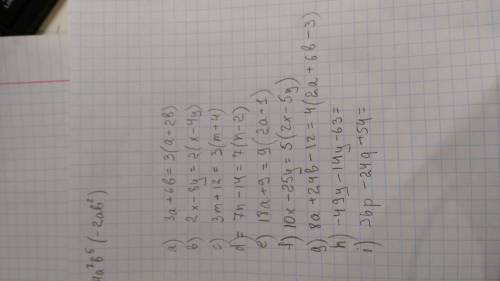 4a³b⁵(-2ab²)
a) 3a+6b=3(a+2b)
b) 2x-8y=2(x-4y)
c) 3m+12=3(m+4)
d)= 7n-14=7(n-2)
e) 18a+9=9(2a+1)
f) 10x-25y=5(2x-5y)
g) 8a+24b-12=4(2a+6b-3)
h) -49y-14y-63=
i) 36p-24q+54=